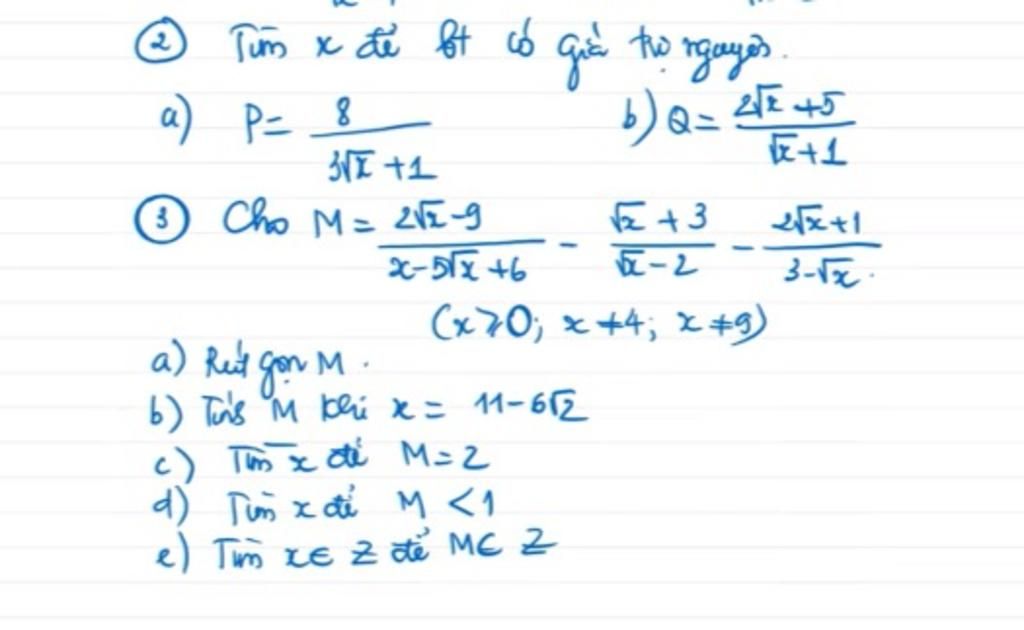 ② Tìm x để bt có giá trị nguyên.
a) P = 8/(3√x + 1) b) Q = (2√x + 5)/(√x + 1)
③ Cho M = (2√x - 9)/(x - 5√x + 6) - (√x + 3)/(√x - 2) - (2√x + 1)/(3 - √x).
(x ⩾ 0; x ≠ 4; x ≠ 9)
a) Rút gọn M.
b) Tính M khi x = 11 - 6√2
c) Tìm x để M = 2
d) Tìm x để M < 1
e) Tìm x ∈ Z để M ∈ Z